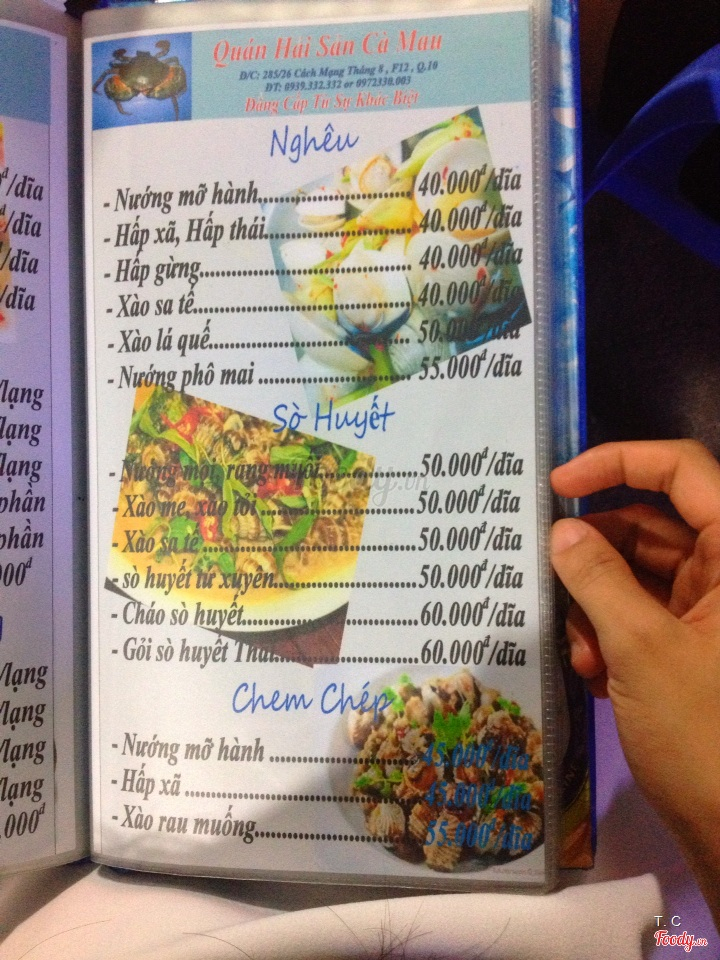 Quán Hải Sản Cà Mau
Đ/C: 285/26 Cách Mạng Tháng 8 , F12 , Q.10
ĐT: 0939.332.332 or 0972330.003
Đẳng Cấp Từ Sự Khác Biệt
Nghêu
- Nướng mỡ hành 40.000đ/dĩa
- Hấp xã, Hấp thái 40.000đ/dĩa
- Hấp gừng 40.000đ/dĩa
- Xào sa tế 40.000đ/dĩa
- Xào lá quế 50.000đ/dĩa
- Nướng phô mai 55.000đ/dĩa
Sò Huyết
- Nướng mọi, rang muối 50.000đ/dĩa
- Xào me, xào tỏi 50.000đ/dĩa
- Xào sa tế 50.000đ/dĩa
- sò huyết tứ xuyên 50.000đ/dĩa
- Cháo sò huyết 60.000đ/dĩa
- Gỏi sò huyết Thái 60.000đ/dĩa
Chem Chép
- Nướng mỡ hành 45.000đ/dĩa
- Hấp xã 45.000đ/dĩa
- Xào rau muống 55.000đ/dĩa
/dĩa
/dĩa
/dĩa
/dĩa
/lạng
/lạng
/lạng
phần
phần
/lạng
/lạng
/lạng
/lạng
T. C
Foody.vn